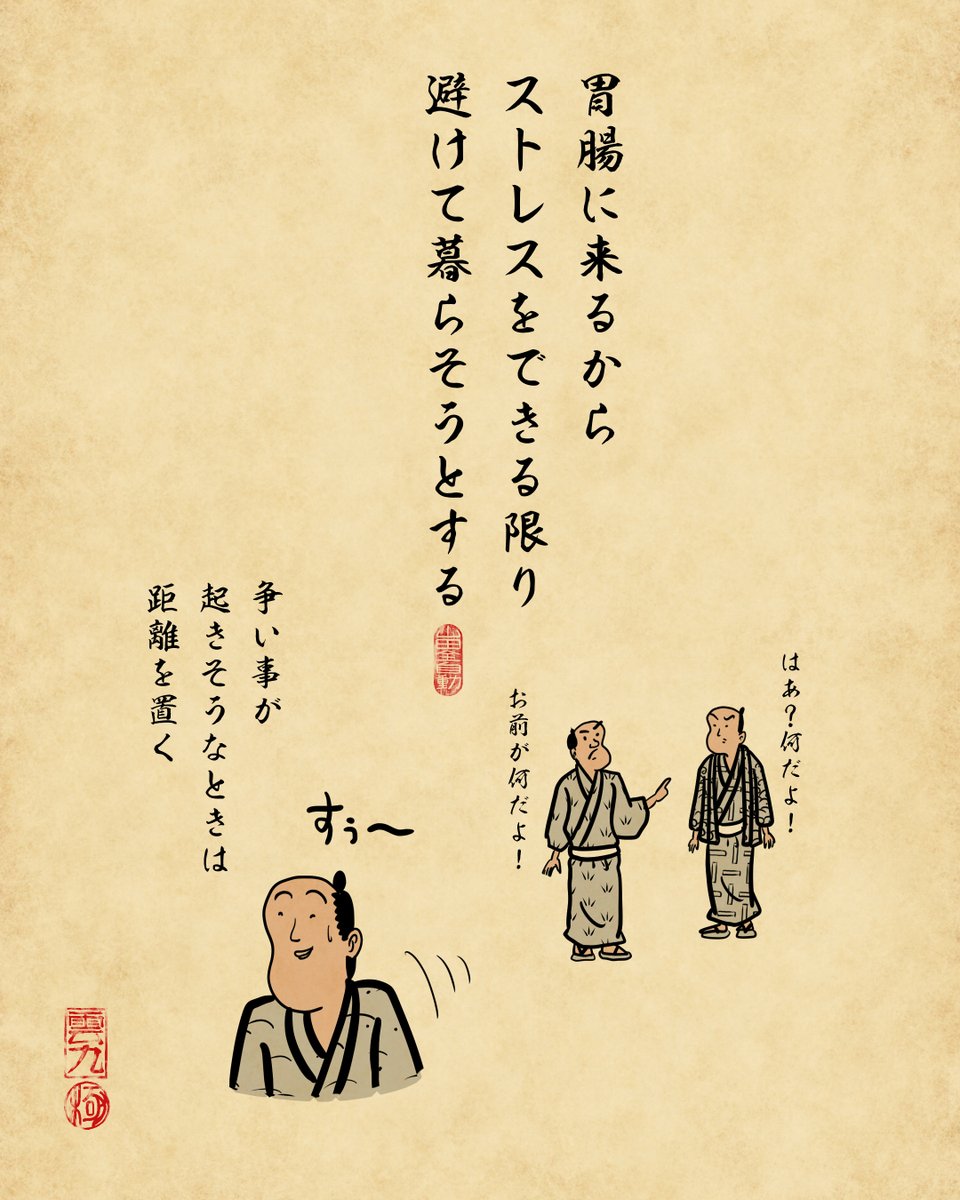 胃腸に来るから
ストレスをできる限り
避けて暮らそうとする
はあ？何だよ！
お前が何だよ！
争い事が
起きそうなときは
距離を置く
すぅ〜